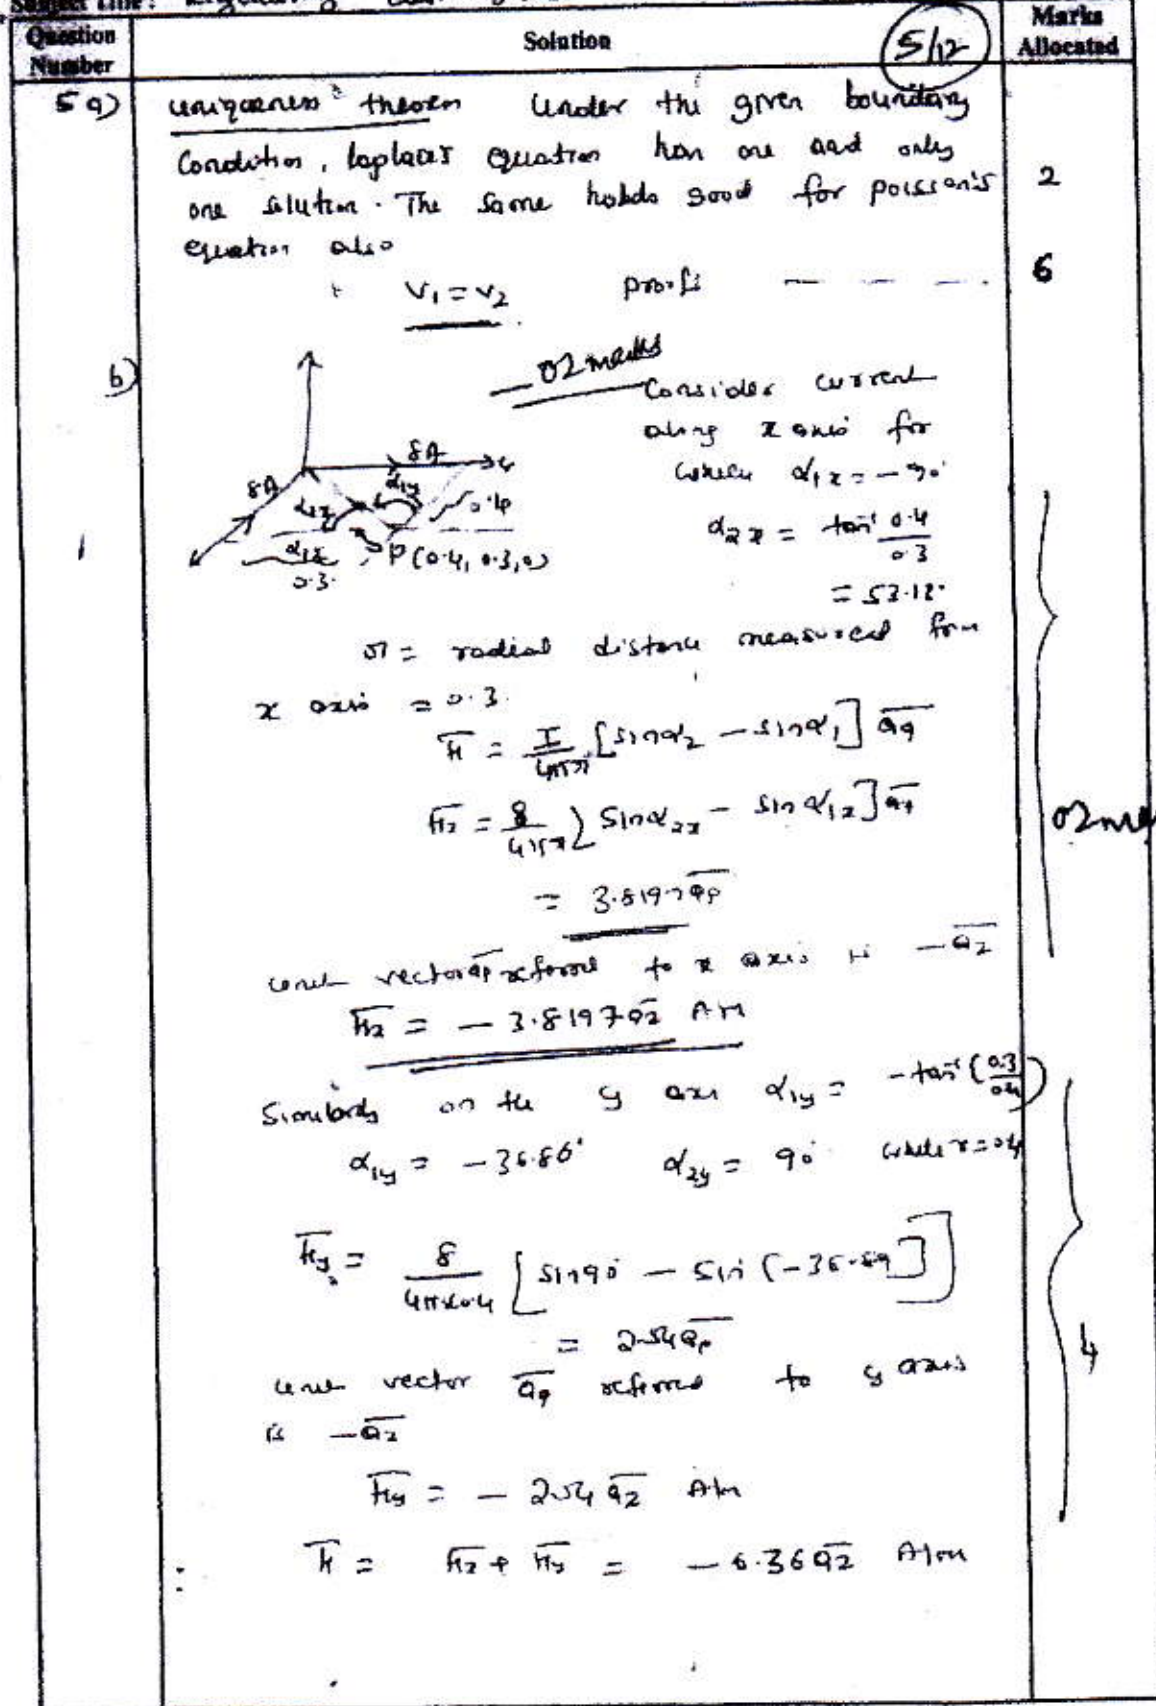 Subject Title:
Question Number
Solution
5/12
Marks Allocated
5 a)
uniqueness theorem Under the given boundary
Condition, Laplace's equation has one and only
one solution. The same holds good for poisson's
equation also
2
V₁ = V₂ proof: — — — .
6
b)
— 02 marks
Consider current
along x axis for
which α₁ₓ = -90°
8A
8A
α₁y
0.4
α₂ₓ
0.3
P(0.4, 0.3, 0)
α₂ₓ = tan⁻¹ 0.4/0.3
= 53.12°
r = radial distance measured from
x axis = 0.3.
H̄ = I/4πr [sinα₂ - sinα₁] āφ
H̄ₓ = 8/4πr [sinα₂ₓ - sinα₁ₓ] āφ
= 3.8197 āφ
02 ma
unit vector āφ referred to x axis is -āz
H̄ₓ = - 3.8197 āz A/m
Similarly on the y axis α₁y = -tan⁻¹(0.3/0.4)
α₁y = -36.86° α₂y = 90° while r = 0.4
H̄y = 8/4π×0.4 [sin90° - sin(-36.89)]
= 2.54 āφ
4
unit vector āφ referred to y axis
is -āz
H̄y = - 2.54 āz A/m
∴ H̄ = H̄ₓ + H̄y = - 6.36 āz A/m